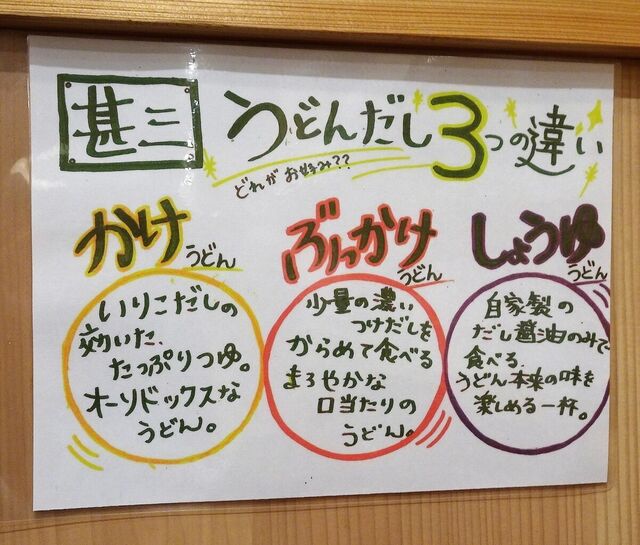 甚三
うどんだし3つの違い
どれがお好み??
かけうどん
いりこだしの
効いた、
たっぷりつゆ。
オーソドックスな
うどん。
ぶっかけうどん
少量の濃い
つけだしを
からめて食べる
まろやかな
口当たりの
うどん。
しょうゆうどん
自家製の
だし醤油のみで
食べる。
うどん本来の味を
楽しめる一杯。